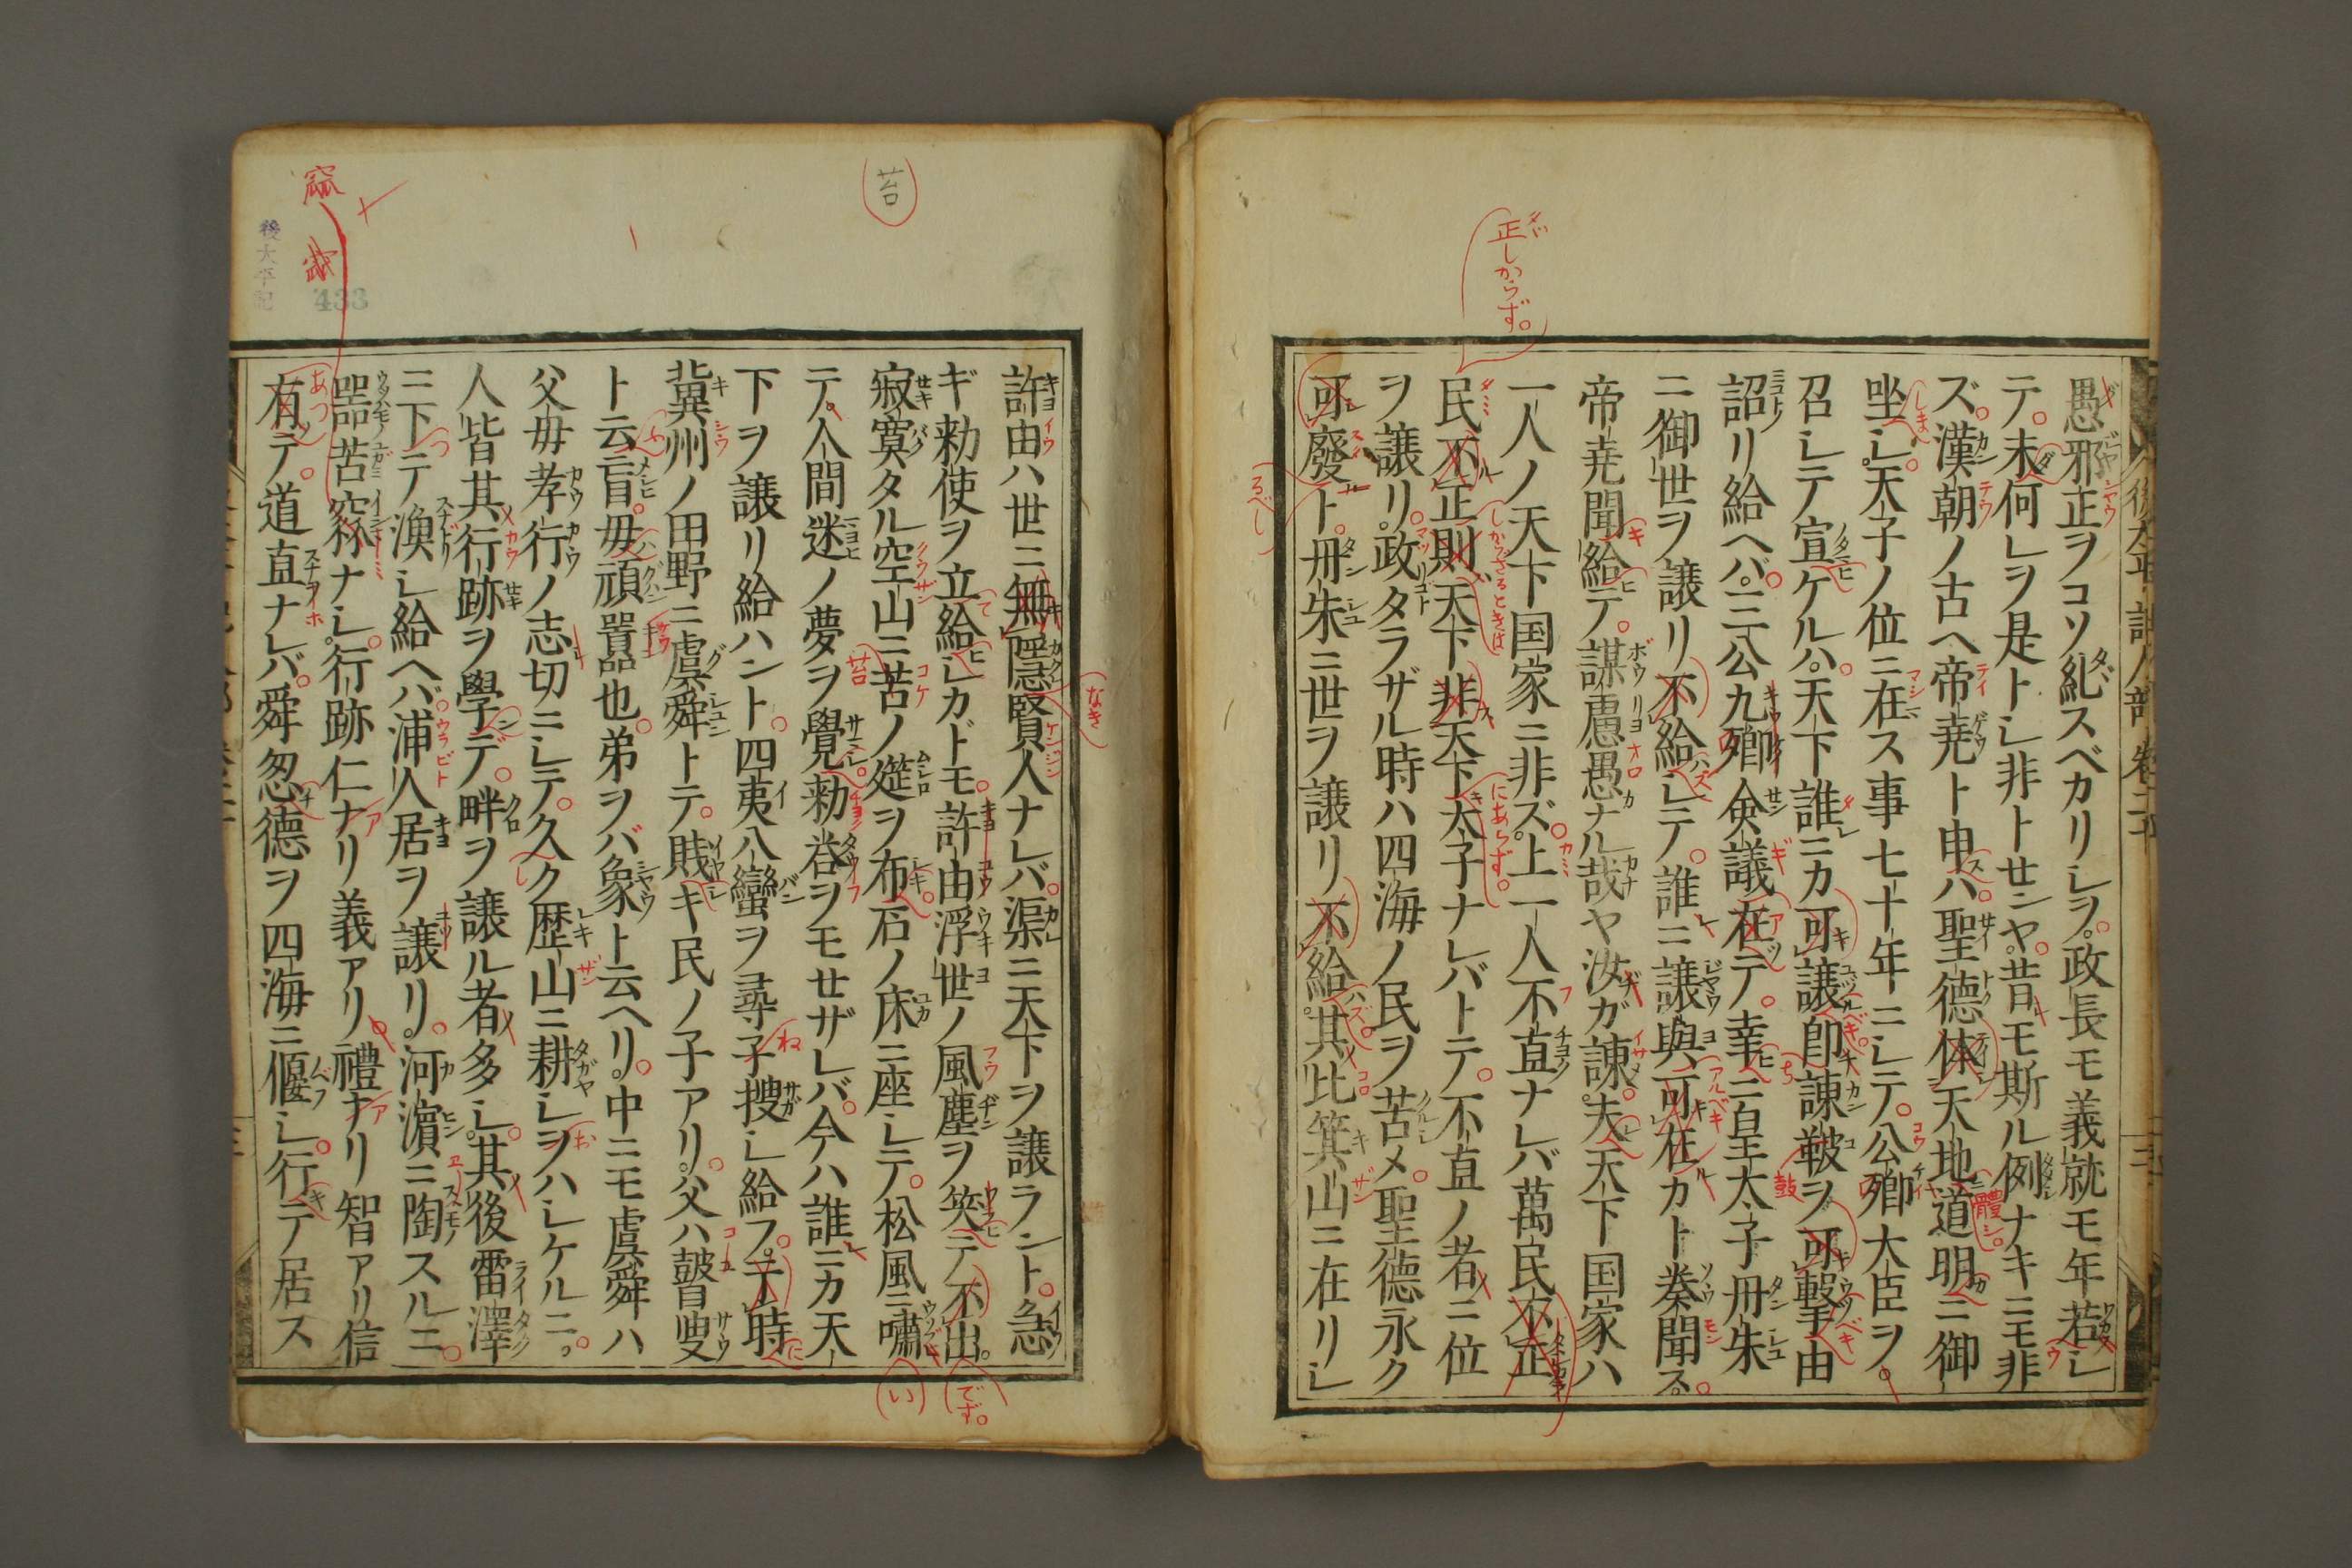 愚邪正ヲコソ糺スベカリシヲ。政長モ義就モ年若シ
テ。未何レヲ是トシ非トセンヤ。昔モ斯ル例ナキニモ非
ズ。漢朝ノ古ヘ帝堯ト申ハ。聖徳体天地道明ニ御
坐シ。天子ノ位ニ在ス事七十年ニシテ。公卿大臣ヲ。
召シテ宣ケルハ。天下誰ニカ可譲。即諌鞁ヲ可撃由
詔リ給ヘバ。三公九卿僉議在テ。幸ニ皇太子丹朱
ニ御世ヲ譲リ不給シテ。誰ニ譲與可在カト奏聞ス。
帝堯聞給テ。謀慮愚ナル哉ヤ汝ガ諌。夫天下国家ハ
一人ノ天下国家ニ非ズ。上一人不直ナレバ萬民不正
民不正則天下非天下太子ナレバトテ。不直ノ者ニ位
ヲ譲リ。政タラザル時ハ四海ノ民ヲ苦メ。聖徳永ク
可廢ト。丹朱ニ世ヲ譲リ不給。其比箕山ニ在リシ
許由ハ世ニ無隠賢人ナレバ。渠ニ天下ヲ譲ラント。急
ギ勅使ヲ立給シカドモ。許由浮世ノ風塵ヲ笑テ不出。
寂寞タル空山ニ苦ノ筵ヲ布。石ノ床ニ座シテ。松風ニ嘯
テ。人間迷ノ夢ヲ覺。勅答ヲモセザレバ。今ハ誰ニカ天
下ヲ譲リ給ハント。四夷八蠻ヲ尋子捜シ給フ。于時
冀州ノ田野ニ虞舜トテ。賎キ民ノ子アリ。父ハ瞽叟
ト云盲。毋頑嚚也。弟ヲバ象ト云ヘリ。中ニモ虞舜ハ
父毋孝行ノ志切ニシテ。久ク歴山ニ耕シヲハシケルニ。
人皆其行跡ヲ學デ。畔ヲ譲ル者多シ。其後雷澤
ニ下テ漁シ給ヘバ。浦人居ヲ譲リ。河濵ニ陶スルニ。
噐苦窳ナシ。行跡仁ナリ義アリ。禮ナリ智アリ信
有テ。道直ナレバ。舜忽徳ヲ四海ニ偃シ。行テ居ス
正しからず。
るべし
苔
なき
でず。
い
後太平記
433